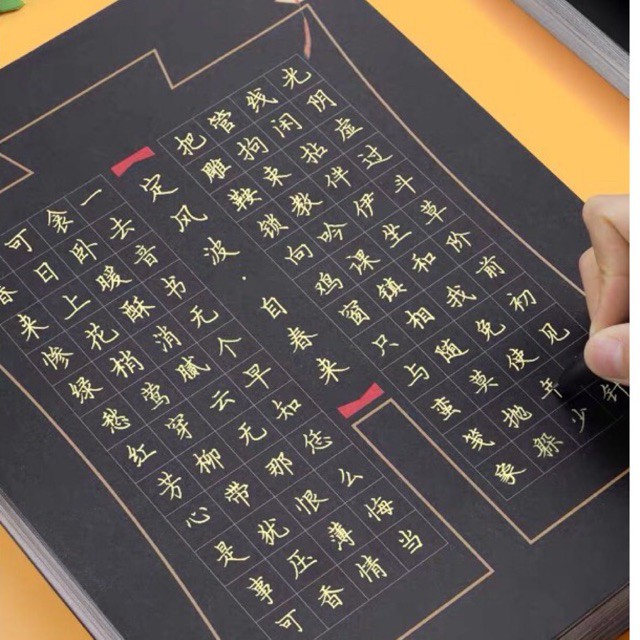 春来惨绿愁红芳心是事可
可日上花梢莺穿柳带犹压香
衾卧暖酥消腻云无那恨薄情
一去音书无个早知恁么悔当
定风波·自春来
把雕鞍锁向鸡窗只与蛮笺象
管拘束教吟课镇相随莫抛躲
线闲拈伴伊坐和我免使年少
光阴虚过斗草阶前初见针